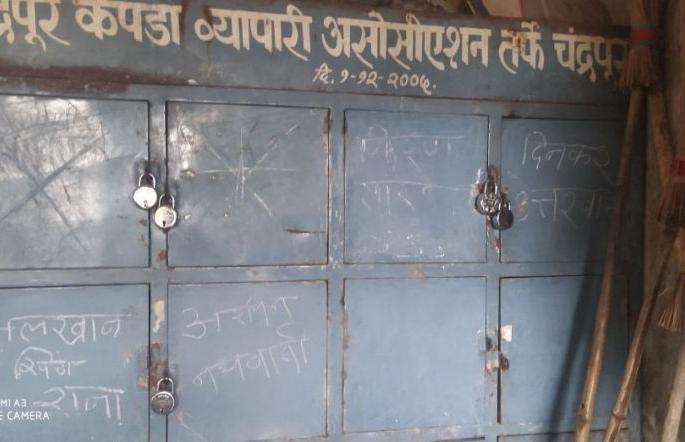 द्रपूर कपडा व्यापारी असोसीएशन तर्फे चंद्रपूर
दि. १-१२-२००५.
किरण
दिनकर
उत्तरवा
मलखान
सिंग
राजा
MI A3
E CAMERA